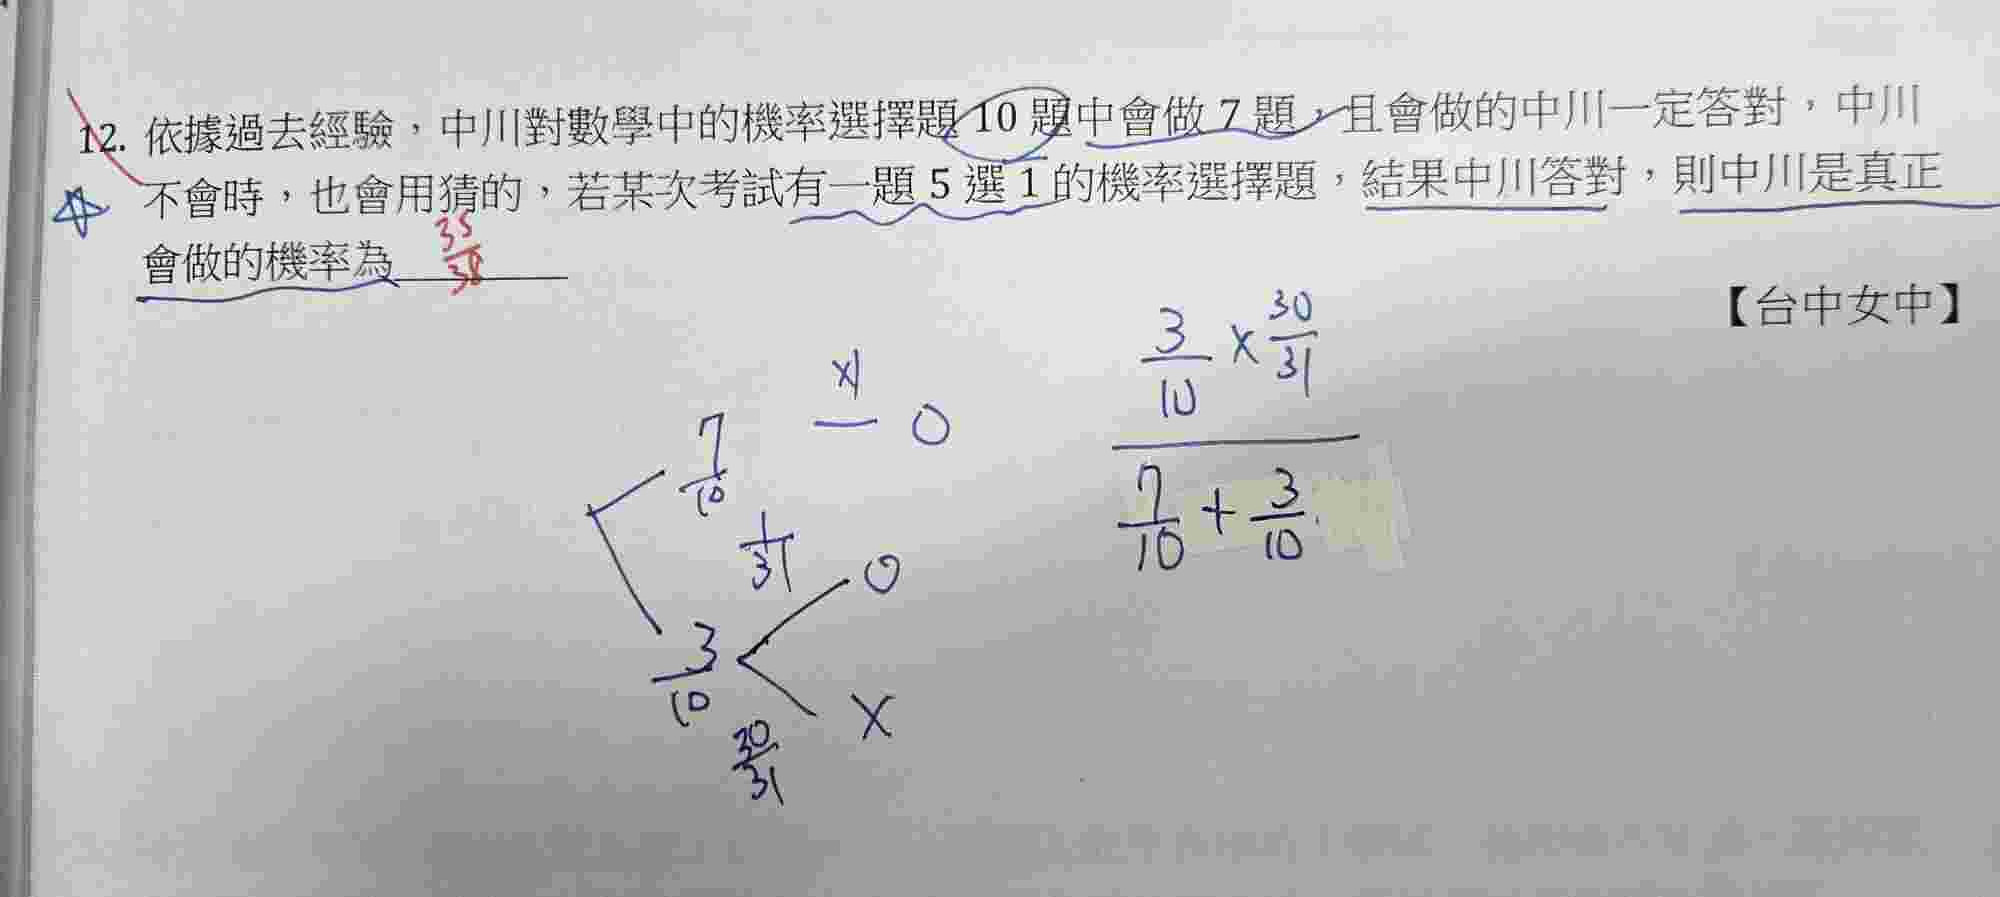 12. 依據過去經驗，中川對數學中的機率選擇題 10 題中會做 7 題，且會做的中川一定答對，中川
不會時，也會用猜的，若某次考試有一題 5 選 1 的機率選擇題，結果中川答對，則中川是真正
會做的機率為 35/38
【台中女中】
7/10 x1 O
1/31 O
3/10
30/31 X
3/10 x 30/31
7/10 + 3/10